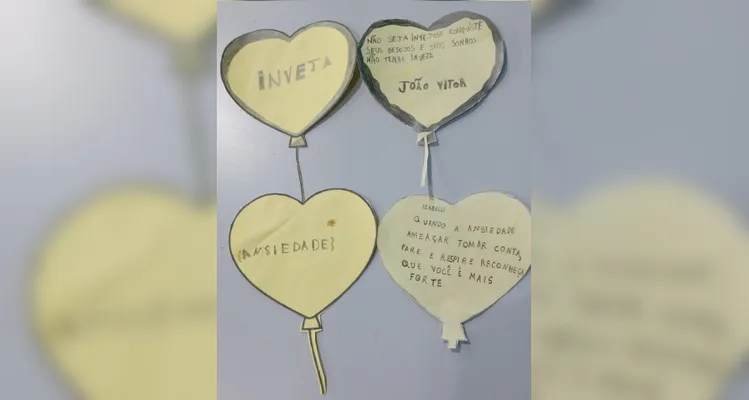 INVEJA
NÃO SEJA INVEJOSO CONQUISTE
SEUS DESEJOS E SEUS SONHOS
NÃO TENHA INVEJA
JOÃO VITOR
{ANSIEDADE}
IZABELLI
QUANDO A ANSIEDADE
AMEAÇAR TOMAR CONTA,
PARE E RESPIRE RECONHEÇA
QUE VOCÊ É MAIS
FORTE